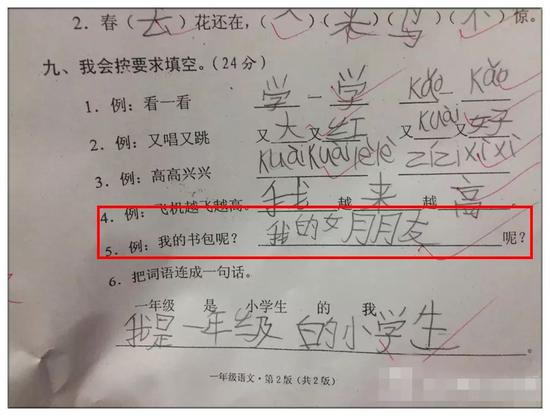 2. 春(去)花还在,(人)(来)(鸟)(不)惊。
九、我会按要求填空。(24分)
1. 例:看一看 学一学 kǎo-kǎo
2. 例:又唱又跳 又大又红 又kuài又好
3. 例:高高兴兴 kuàikuàilèlè zǐzǐxìxì
4. 例:飞机越飞越高。 我越来越高。
5. 例:我的书包呢? 我的女朋友呢?
6. 把词语连成一句话。
一年级 是 小学生 的 我
我是一年级的小学生。
一年级语文·第2版(共2版)